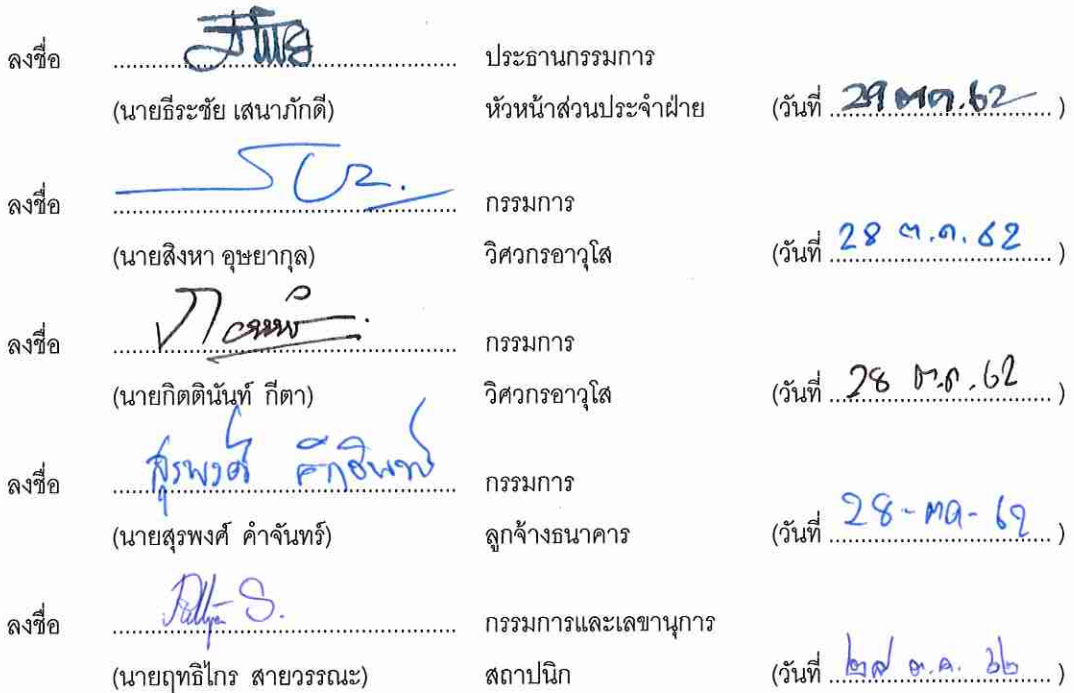 ลงชื่อ ........................ ประธานกรรมการ
(นายธีระชัย เสนาภักดี) หัวหน้าส่วนประจำฝ่าย (วันที่ 29 ตค. 62)
ลงชื่อ ........................ กรรมการ
(นายสิงหา อุษยากุล) วิศวกรอาวุโส (วันที่ 28 ต.ค. 62)
ลงชื่อ ........................ กรรมการ
(นายกิตตินันท์ กีตา) วิศวกรอาวุโส (วันที่ 28 ต.ค. 62)
ลงชื่อ สุรพงศ์ ........................ กรรมการ
(นายสุรพงศ์ คำจันทร์) ลูกจ้างธนาคาร (วันที่ 28-ตค-62)
ลงชื่อ ........................ กรรมการและเลขานุการ
(นายฤทธิไกร สายวรรณะ) สถาปนิก (วันที่ ๒๘ ต.ค. ๖๒)